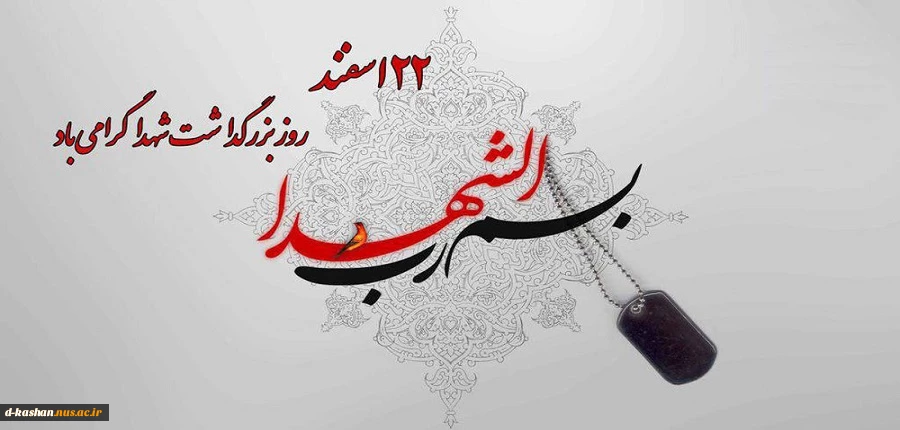 ۲۲ اسفند
روز بزرگداشت شهدا گرامی باد
بسم رب الشهدا
d-kashan.nus.ac.ir